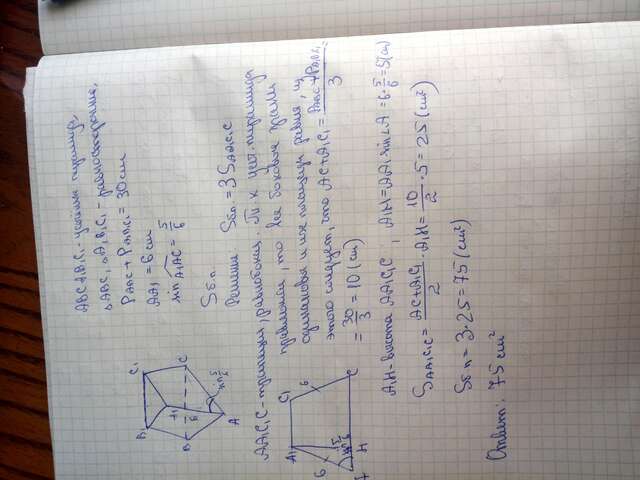 ABCA₁B₁C₁ - усечён. пирамида,
△ABC, △A₁B₁C₁ - равносторонние,
P_ABC + P_A₁B₁C₁ = 30 см
AA₁ = 6 см
sin A₁AC = 5/6
Sбп
Решение: Sбп = 3S_AA₁C₁C
AA₁C₁C - трапеция, равнобокая. Т. к. усеч. пирамида
правильная, то все боковые грани
одинаковы и их площади равны, из
этого следует, что AC + A₁C₁ = (P_ABC + P_A₁B₁C₁)/3
= 30/3 = 10 (см)
A₁H - высота AA₁C₁C, A₁H = AA₁ · sin∠A = 6 · 5/6 = 5 (см)
S_AA₁C₁C = (AC + A₁C₁)/2 · A₁H = 10/2 · 5 = 25 (см²)
Sбп = 3 · 25 = 75 (см²)
Ответ: 75 см²
B₁
C₁
A₁
B
C
A
6
sin 5/6
A₁
C₁
6
6
H
C